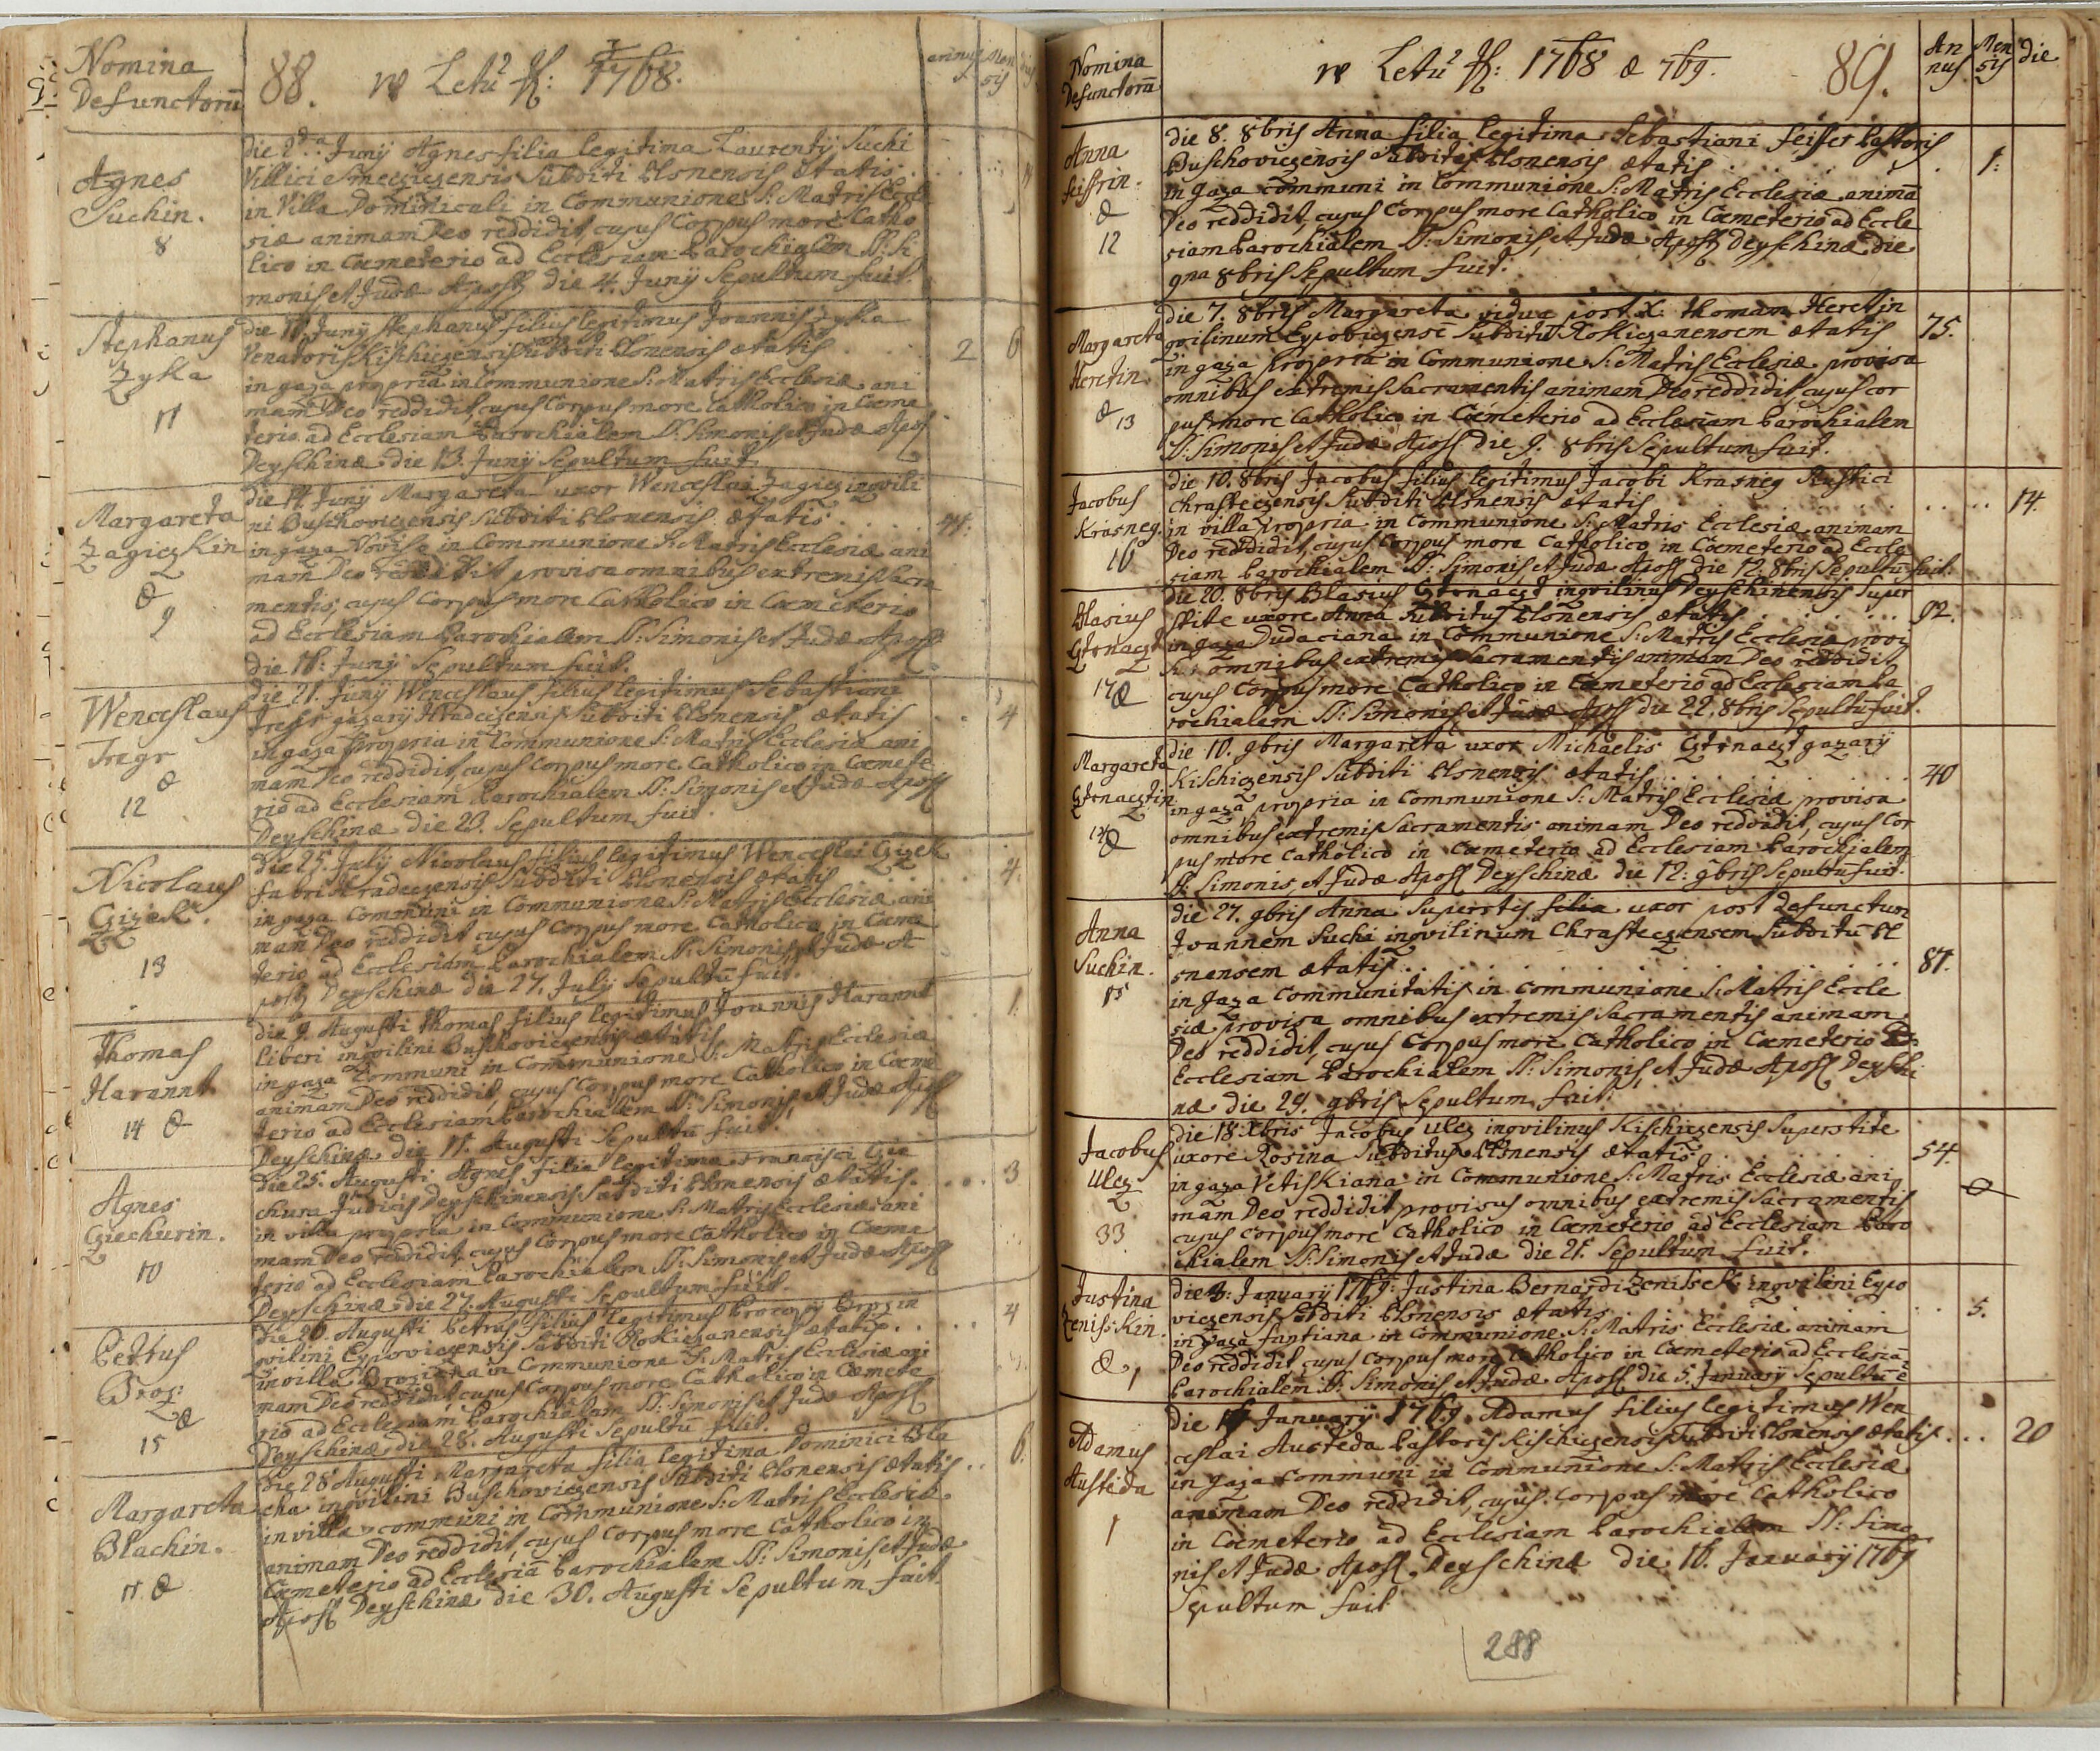 Nomina
Defunctorũ
88.
w Letu² 1768.
annus
Men
sis
Agnes
Suchin.
8
die 2da Junij Agnes filia legitima Laurentij Suchi
Villici Subditi Plsnensis ætatis
in Villa Dominicali in Communione S: Matris Eccle
siæ animam Deo reddidit, cujus Corpus more Catho
lico in Cœmeterio ad Ecclesiam Parochialem SS: Si
monis et Judæ Aposs die 4. Junij Sepultum fuit.
Stephanus
Zyka
11
die 11. Junij Stephanus filius legitimus Joannis Zyka
Venatoris Kischiczensis Subditi Plsnensis ætatis
2
6
in gaza propria in Communione S: Matris Ecclesiæ ani
mam Deo reddidit, cujus Corpus more Catholico in Cœme
terio ad Ecclesiam Parochialem SS: Simonis et Judæ Aposs
Deyschinæ die 13. Junij Sepultum fuit.
Margareta
Zagiczkin
&
9
die 14. Junij Margareta uxor Wenceslai Zagicz inqvili
ni Buschoviczensis Subditi Plsnensis ætatis
44.
in gaza in Communione S: Matris Ecclesiæ ani
mam Deo reddidit provisa omnibus extremis Sacra
mentis, cujus Corpus more Catholico in Cœmeterio
ad Ecclesiam Parochialem SS: Simonis et Judæ Aposs
die 16. Junij Sepultum fuit.
Wenceslaus
Tregr
&
12
die 21. Junij Wenceslaus filius legitimus Sebastiani
Tregr gazarij Hradeczensis Subditi Plsnensis ætatis
4
in gaza propria in Communione S: Matris Ecclesiæ ani
mam Deo reddidit, cujus Corpus more Catholico in Cœmete
rio ad Ecclesiam Parochialem SS: Simonis et Judæ Aposs
Deyschinæ die 23. Sepultum fuit.
Nicolaus
Czizek.
13
die 25. Julij Nicolaus filius legitimus Wenceslai Czizek
fabri Hradeczensis Subditi Plsnensis ætatis
4.
in gaza Communi in Communione S: Matris Ecclesiæ ani
mam Deo reddidit cujus Corpus more Catholico in Cœme
terio ad Ecclesiam Parochialem SS: Simonis et Judæ A
poss Deyschinæ die 27. Julij Sepultũ fuit.
Thomas
Harannt
14 &
die 9. Augusti Thomas filius legitimus Joannis Harannt
liberi inqvilini Buschoviczensis ætatis
1.
in gaza Communi in Communione S: Matris Ecclesiæ
animam Deo reddidit, cujus Corpus more Catholico in Cœme
terio ad Ecclesiam Parochialem SS: Simonis et Judæ Aposs
Deyschinæ die 11. Augusti Sepultũ fuit.
Agnes
Cziechurin.
10
die 25. Augusti Agnes filia legitima Francisci Czie
chura Judicis Deyschinensis Subditi Plsnensis ætatis.
3
in villa propria in Communione S: Matris Ecclesiæ ani
mam Deo reddidit, cujus Corpus more Catholico in Cœme
terio ad Ecclesiam Parochialem SS: Simonis et Judæ Aposs
Deyschinæ die 27. Augusti Sepultum fuit.
Petrus
Broz:
&
15
die 26. Augusti Petrus filius legitimus Procopij Broz in
qvilini Eypoviczensis Subditi Rokiczanensis ætatis.
4
in villa in Communione S: Matris Ecclesiæ ani
mam Deo reddidit, cujus Corpus more Catholico in Cœmete
rio ad Ecclesiam Parochialem SS: Simonis et Judæ Aposs
Deyschinæ die 28. Augusti Sepultũ fuit.
Margareta
Blachin.
11 &
die 28 Augusti Margareta filia legitima Dominici Bla
cha inqvilini Buschoviczensis Subditi Plsnensis ætatis
6.
in villa communi in Communione S: Matris Ecclesiæ
animam Deo reddidit, cujus Corpus more Catholico in
Cœmeterio ad Ecclesiã Parochialem SS: Simonis, et Judæ
Aposs Deyschinæ die 30. Augusti Sepultum fuit.
Nomina
Defunctorũ
w Letu² 1768 & 769.
89.
An
nus
Men
sis
die
Anna
Feissrin.
&
12
die 8. 8bris Anna filia legitima Sebastiani Feisser Pastoris
Buschoviczensis Subditi Plsnensis ætatis
1:
in gaza communi in Communione S: Matris Ecclesiæ animã
Deo reddidit, cujus Corpus more Catholico in Cœmeterio ad Eccle
siam Parochialem SS: Simonis, et Judæ Aposs Deyschinæ die
9na 8bris Sepultum fuit.
Margareta
Heretin
&
13
die 7. 8bris Margareta vidua post X. Thomam Heret in
qvilinum Eypoviczensẽ Subditũ Rokiczanensem ætatis
75.
in gaza propria in Communione S: Matris Ecclesiæ provisa
omnibus extremis Sacramentis animam Deo reddidit, cujus cor
pus more Catholico in Cœmeterio ad Ecclesiam Parochialem
SS: Simonis, et Judæ Aposs: die 9. 8bris Sepultum fuit.
Jacobus
Krasneg.
16
die 10. 8bris Jacobus filius legitimus Jacobi Krasneg Rustici
Chrasteczensis Subditi Plsnensis ætatis
14.
in villa propria in Communione S: Matris Ecclesiæ animam
Deo reddidit, cujus Corpus more Catholico in Cœmeterio ad Eccle
siam Parochialem SS: Simonis et Judæ Aposs die 12. 8bris Sepultũ fuit.
Blasius
Cztrnaczt
17 &
die 20. 8bris Blasius Cztrnaczt inqvilinus Deyschinensis Super
stite uxore Anna Subditus Plsnensis ætatis
92.
in gaza Dudaciana in Communione S: Matris Ecclesiæ provi
sus omnibus extremis Sacramentis animam Deo reddidit
cujus Corpus more Catholico in Cœmeterio ad Ecclesiam Pa
rochialem SS: Simonis et Judæ Aposs die 22. 8bris Sepultũ fuit.
Margareta
Cztrnacztin
14 &
die 10. 9bris Margareta uxor Michaelis Cztrnaczt gazarij
Kischiczensis Subditi Plsnensis ætatis
40
in gaza propria in Communione S: Matris Ecclesiæ provisa
omnibus extremis Sacramentis animam Deo reddidit, cujus Cor
pus more Catholico in Cœmeterio ad Ecclesiam Parochialem
SS: Simonis, et Judæ Aposs Deyschinæ die 12. 9bris Sepultũ fuit.
Anna
Suchin.
15
die 27. 9bris Anna Superstes filia uxor post defunctum
Joannem Suchi inqvilinum Chrasteczensem Subditũ Pl
snensem ætatis
87.
in gaza Communitatis in Communione S: Matris Eccle
siæ provisa omnibus extremis Sacramentis animam
Deo reddidit, cujus Corpus more Catholico in Cœmeterio
Ecclesiam Parochialem SS: Simonis, et Judæ Aposs Deyschi
næ die 29. 9bris Sepultum fuit.
Jacobus
Ulcz
33
die 18 Xbris Jacobus Ulcz inqvilinus Kischiczensis Superstite
uxore Rosina Subditus Plsnensis ætatis
54.
in gaza Vetiskiana in Communione S: Matris Ecclesiæ ani
mam Deo reddidit provisus omnibus extremis Sacramentis
cujus Corpus more Catholico in Cœmeterio ad Ecclesiam Paro
chialem SS: Simonis et Judæ die 21. Sepultum fuit.
Justina
Zenisskin.
&
1
die 3. Januarij 1769. Justina Bernardi Zenissek inqvilini Eypo
viczensis Subditi Plsnensis ætatis
5.
in gaza in Communione S: Matris Ecclesiæ animam
Deo reddidit, cujus Corpus more Catholico in Cœmeterio ad Ecclesiã
Parochialem SS: Simonis et Judæ Aposs die 5. Januarij Sepultũ ẽ
Adamus
Austeda
1
die Januarij 1769 Adamus filius legitimus Wen
ceslai Austeda Pastoris Kischiczensis Subditi Plsnensis ætatis
20
in gaza communi in Communione S: Matris Ecclesiæ
animam Deo reddidit, cujus Corpus more Catholico
in Cœmeterio ad Ecclesiam Parochialem SS: Simo
nis et Judæ Aposs. Deyschinæ die 16. Januarij 1769
Sepultum fuit
288